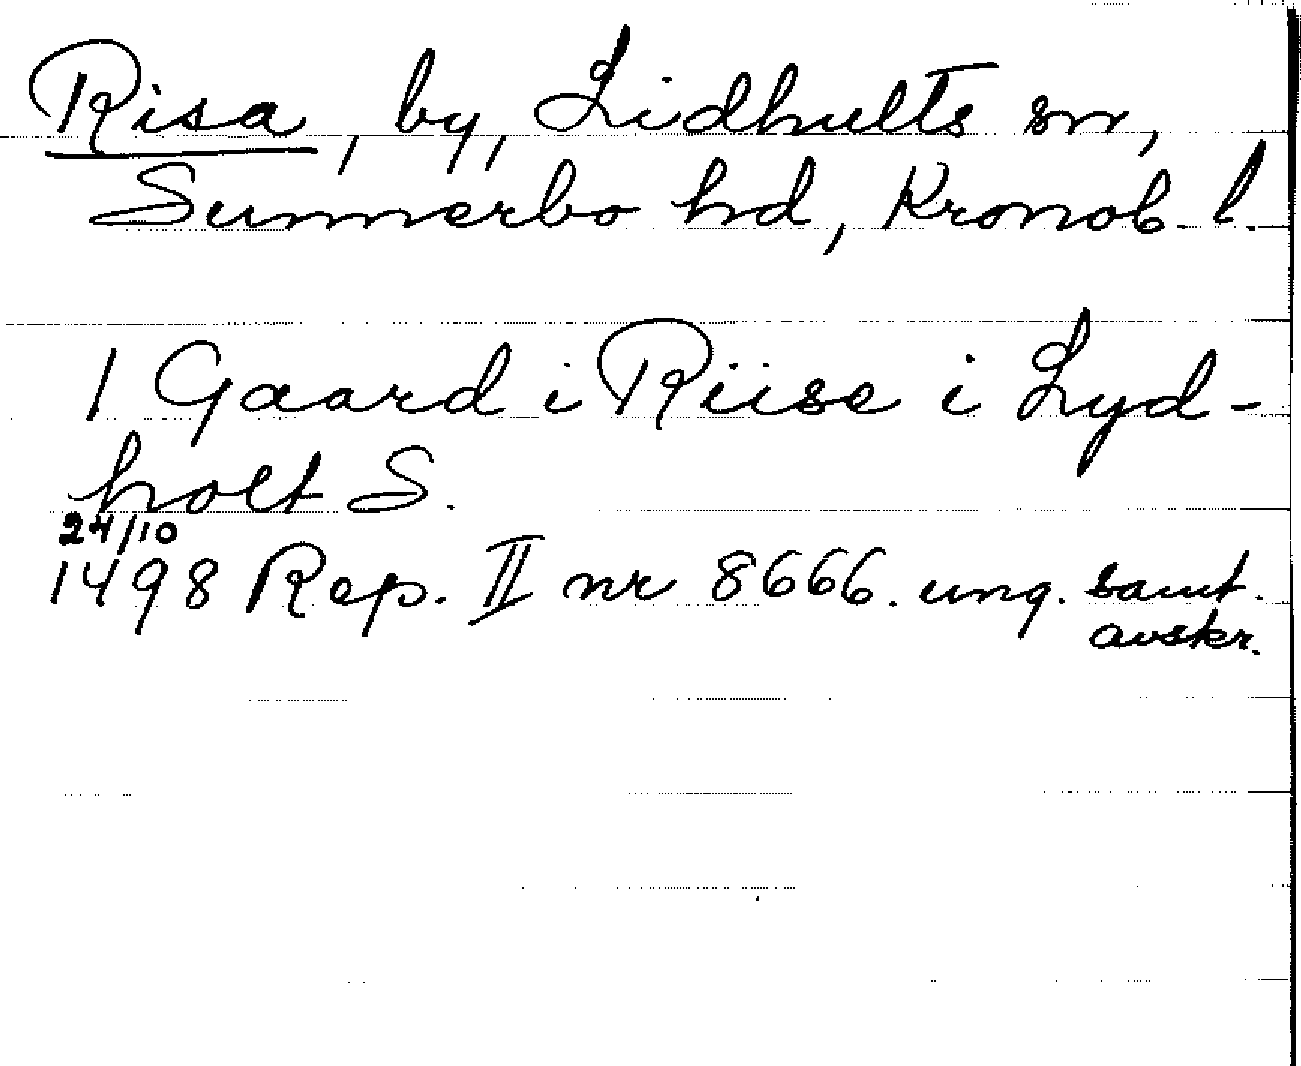 Risa, by, Lidhults sn,
Sunnerbo hd, Kronob. l.
1 Gaard i Riise i Lyd-
holt S.
24/10
1498 Rep. II nr 8666. ung. samt.
avskr.